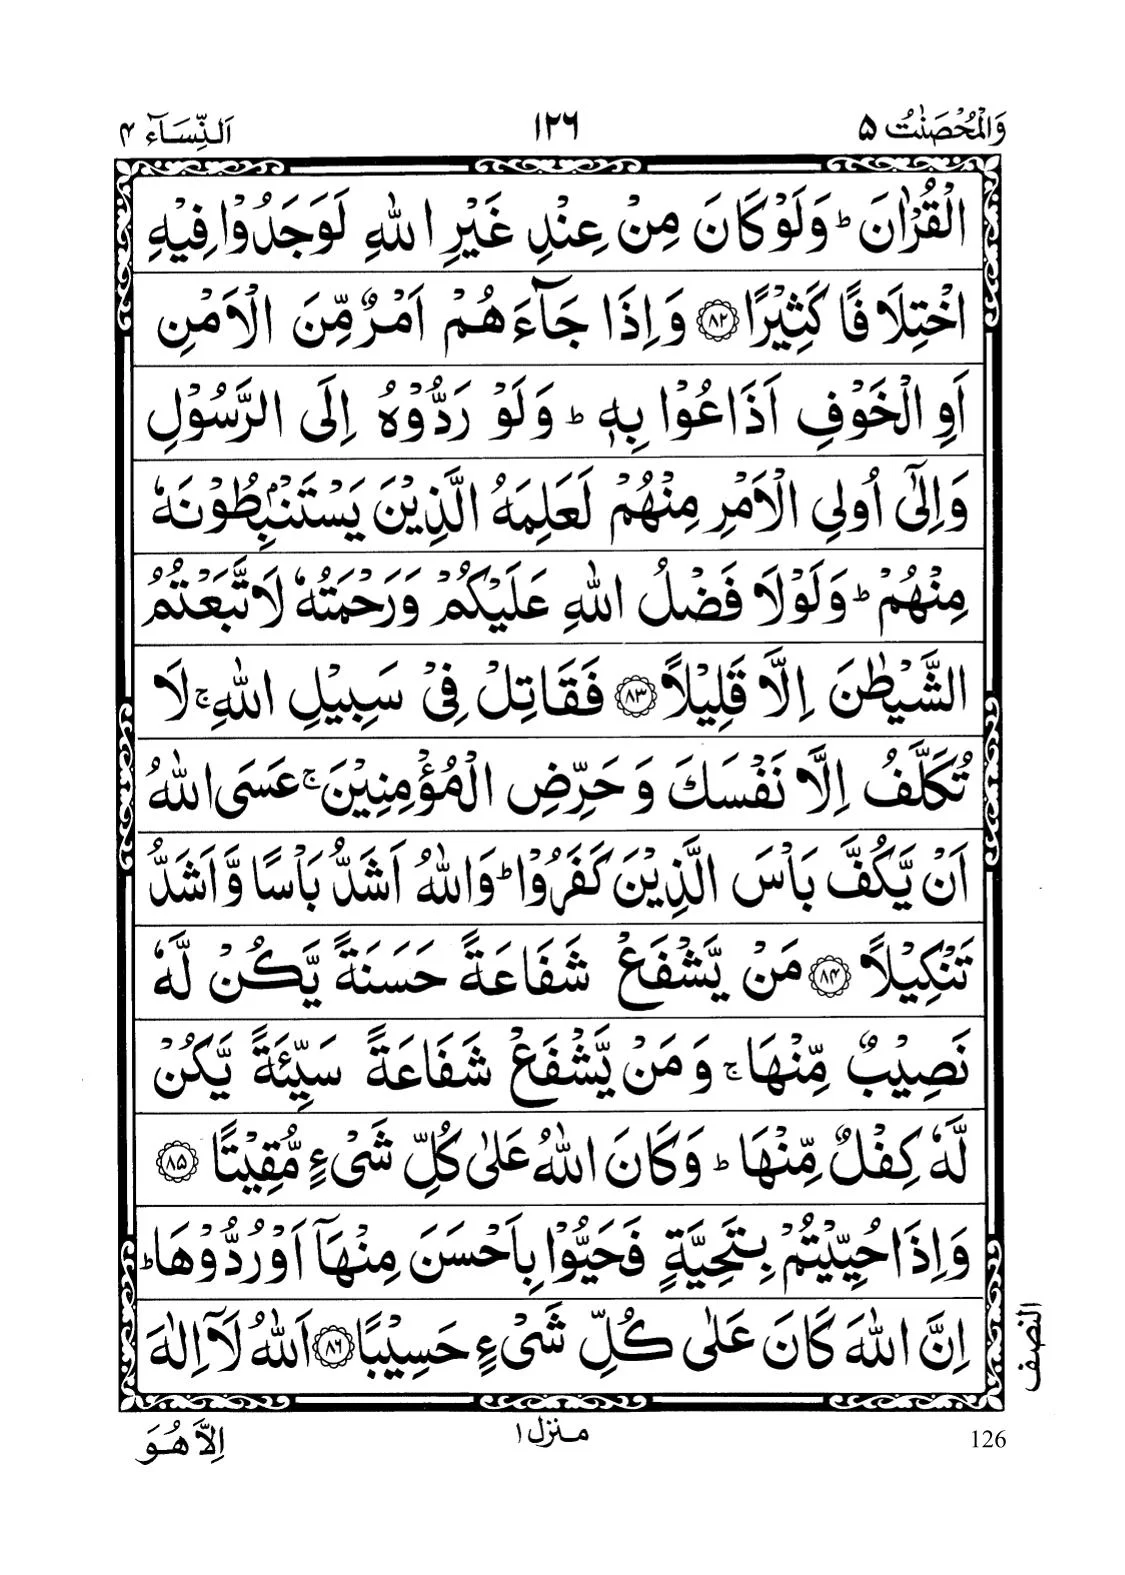 وَالْمُحْصَنٰتُ ۵
۱۲۶
اَلنِّسَآء ۴
الْقُرْاٰنَ ؕ وَلَوْ كَانَ مِنْ عِنْدِ غَيْرِ اللّٰهِ لَوَجَدُوْا فِيْهِ
اخْتِلَافًا كَثِيْرًا ۸۲ وَاِذَا جَآءَهُمْ اَمْرٌ مِّنَ الْاَمْنِ
اَوِ الْخَوْفِ اَذَاعُوْا بِهٖ ؕ وَلَوْ رَدُّوْهُ اِلَى الرَّسُوْلِ
وَاِلٰٓى اُولِي الْاَمْرِ مِنْهُمْ لَعَلِمَهُ الَّذِيْنَ يَسْتَنْۢبِطُوْنَهٗ
مِنْهُمْ ؕ وَلَوْلَا فَضْلُ اللّٰهِ عَلَيْكُمْ وَرَحْمَتُهٗ لَاتَّبَعْتُمُ
الشَّيْطٰنَ اِلَّا قَلِيْلًا ۸۳ فَقَاتِلْ فِيْ سَبِيْلِ اللّٰهِ ۚ لَا
تُكَلَّفُ اِلَّا نَفْسَكَ وَحَرِّضِ الْمُؤْمِنِيْنَ ۚ عَسَى اللّٰهُ
اَنْ يَّكُفَّ بَاْسَ الَّذِيْنَ كَفَرُوْا ؕ وَاللّٰهُ اَشَدُّ بَاْسًا وَّاَشَدُّ
تَنْكِيْلًا ۸۴ مَنْ يَّشْفَعْ شَفَاعَةً حَسَنَةً يَّكُنْ لَّهٗ
نَصِيْبٌ مِّنْهَا ۚ وَمَنْ يَّشْفَعْ شَفَاعَةً سَيِّئَةً يَّكُنْ
لَّهٗ كِفْلٌ مِّنْهَا ؕ وَكَانَ اللّٰهُ عَلٰى كُلِّ شَيْءٍ مُّقِيْتًا ۸۵
وَاِذَا حُيِّيْتُمْ بِتَحِيَّةٍ فَحَيُّوْا بِاَحْسَنَ مِنْهَآ اَوْ رُدُّوْهَا ؕ
اِنَّ اللّٰهَ كَانَ عَلٰى كُلِّ شَيْءٍ حَسِيْبًا ۸۶ اَللّٰهُ لَآ اِلٰهَ
النصف
126
منزل ۱
اِلَّا هُوَ